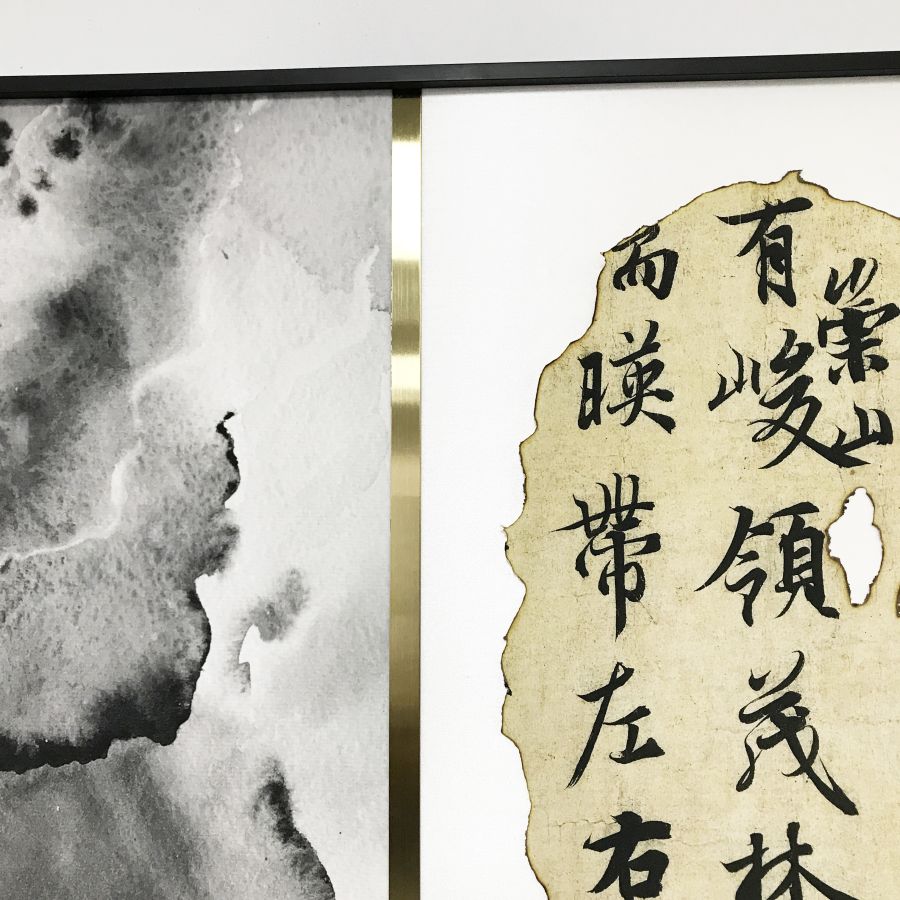 崇山
有峻領茂林
湍暎帶左右